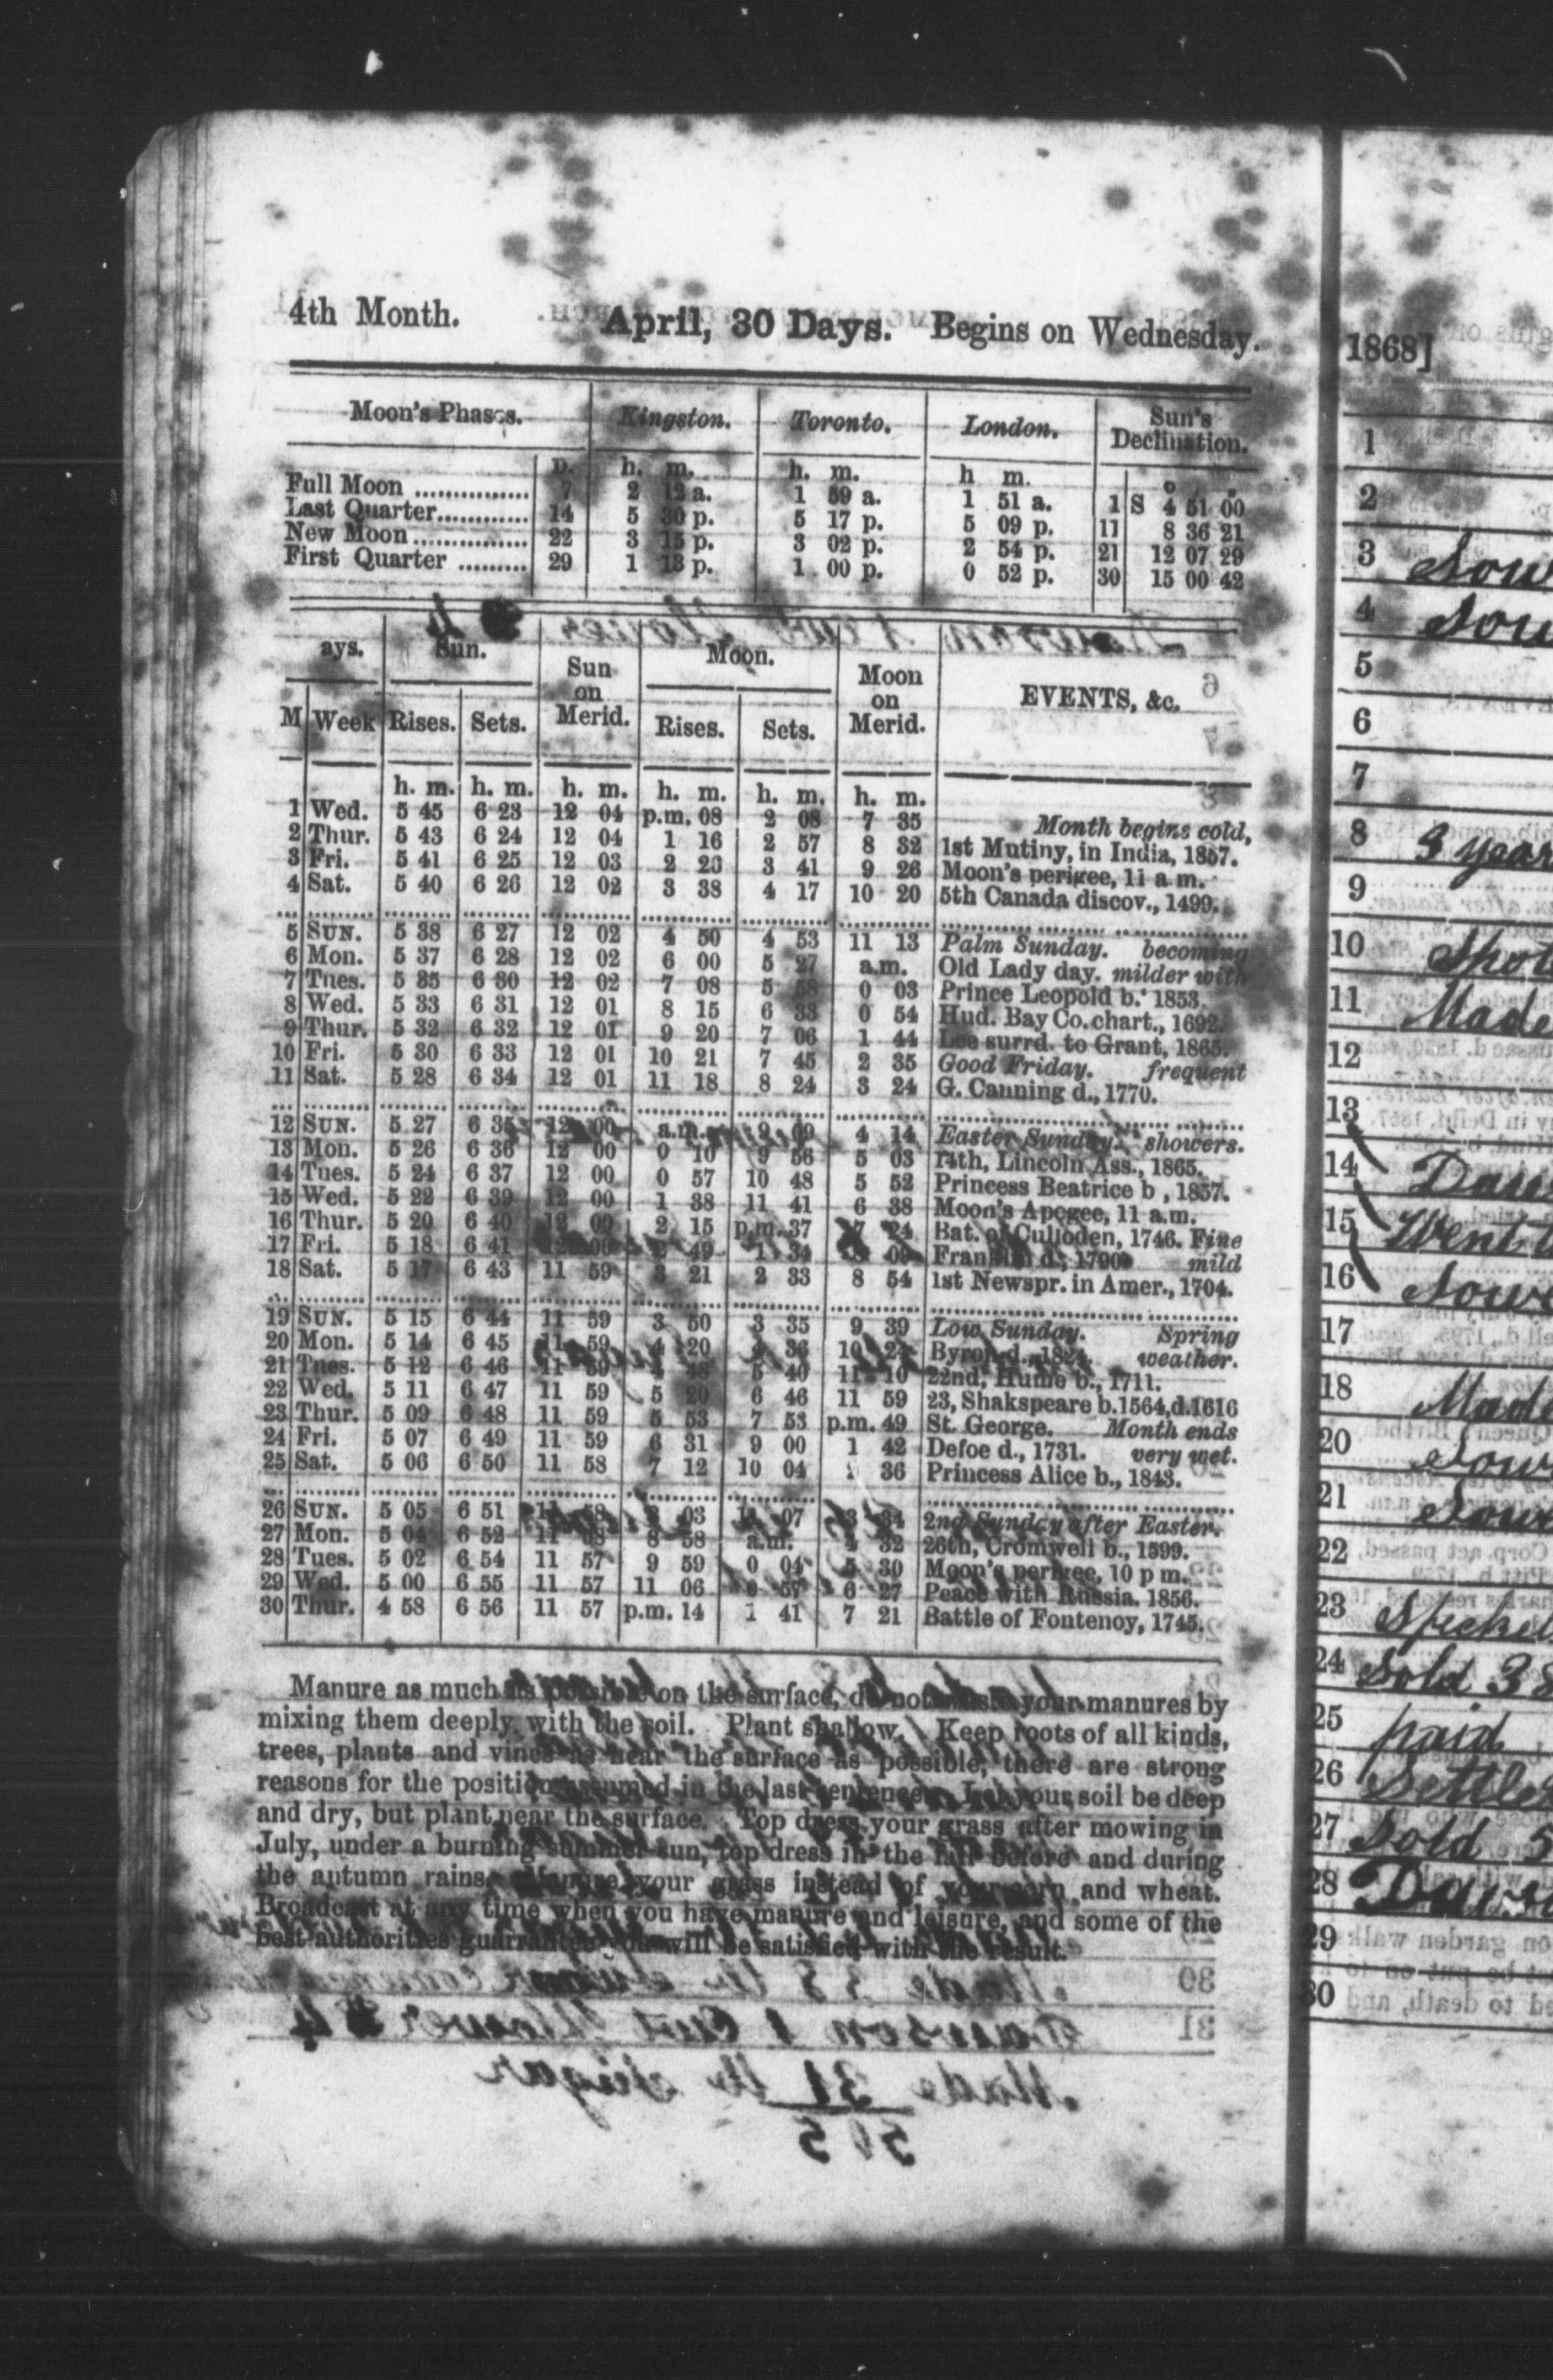 4th Month. April, 30 Days. Begins on Wednesday.
Moon's Phases. Kingston. Toronto. London. Sun's Declination.
D. h. m. h. m. h m. ° ′ ″
Full Moon ............... 7 2 12 a. 1 59 a. 1 51 a. 1 S 4 51 00
Last Quarter............. 14 5 30 p. 5 17 p. 5 09 p. 11 8 36 21
New Moon ................ 22 3 15 p. 3 02 p. 2 54 p. 21 12 07 29
First Quarter .......... 29 1 13 p. 1 00 p. 0 52 p. 30 15 00 42
ays. Sun. Sun on Merid. Moon. Moon on Merid. EVENTS, &c.
M Week Rises. Sets. Rises. Sets.
h. m. h. m. h. m. h. m. h. m. h. m.
1 Wed. 5 45 6 23 12 04 p.m. 08 2 08 7 35 Month begins cold,
2 Thur. 5 43 6 24 12 04 1 16 2 57 8 32 1st Mutiny, in India, 1857.
3 Fri. 5 41 6 25 12 03 2 23 3 41 9 26 Moon's perigee, 11 a.m.
4 Sat. 5 40 6 26 12 02 3 38 4 17 10 20 5th Canada discov., 1499.
5 SUN. 5 38 6 27 12 02 4 50 4 53 11 13 Palm Sunday. becoming
6 Mon. 5 37 6 28 12 02 6 00 5 27 a.m. Old Lady day. milder with
7 Tues. 5 35 6 30 12 02 7 08 5 58 0 03 Prince Leopold b. 1853.
8 Wed. 5 33 6 31 12 01 8 15 6 33 0 54 Hud. Bay Co. chart., 1692.
9 Thur. 5 32 6 32 12 01 9 20 7 06 1 44 Lee surrd. to Grant, 1865.
10 Fri. 5 30 6 33 12 01 10 21 7 45 2 35 Good Friday. frequent
11 Sat. 5 28 6 34 12 01 11 18 8 24 3 24 G. Canning d., 1770.
12 SUN. 5 27 6 35 12 00 a.m. 9 09 4 14 Easter Sunday. showers.
13 Mon. 5 26 6 36 12 00 0 10 9 56 5 03 14th, Lincoln Ass., 1865.
14 Tues. 5 24 6 37 12 00 0 57 10 48 5 52 Princess Beatrice b , 1857.
15 Wed. 5 22 6 39 12 00 1 38 11 41 6 38 Moon's Apogee, 11 a.m.
16 Thur. 5 20 6 40 12 00 2 15 p.m. 37 7 24 Bat. of Culloden, 1746. Fine
17 Fri. 5 18 6 41 12 00 2 49 1 34 8 09 Franklin d., 1790 mild
18 Sat. 5 17 6 43 11 59 3 21 2 33 8 54 1st Newspr. in Amer., 1704.
19 SUN. 5 15 6 44 11 59 3 50 3 35 9 39 Low Sunday. Spring
20 Mon. 5 14 6 45 11 59 4 20 4 36 10 24 Byron d., 1824. weather.
21 Tues. 5 12 6 46 11 59 4 48 5 40 11 10 22nd, Hume b., 1711.
22 Wed. 5 11 6 47 11 59 5 20 6 46 11 59 23, Shakspeare b.1564,d.1616
23 Thur. 5 09 6 48 11 59 5 53 7 53 p.m. 49 St. George. Month ends
24 Fri. 5 07 6 49 11 59 6 31 9 00 1 42 Defoe d., 1731. very wet.
25 Sat. 5 06 6 50 11 58 7 12 10 04 36 Princess Alice b., 1843.
26 SUN. 5 05 6 51 11 58 03 11 07 3 34 2nd Sunday after Easter.
27 Mon. 5 04 6 52 11 58 8 58 a.m. 4 32 26th, Cromwell b., 1599.
28 Tues. 5 02 6 54 11 57 9 59 0 04 5 30 Moon's perigee, 10 p m.
29 Wed. 5 00 6 55 11 57 11 06 0 57 6 27 Peace with Russia. 1856.
30 Thur. 4 58 6 56 11 57 p.m. 14 1 41 7 21 Battle of Fontenoy, 1745.
Manure as much as possible on the surface, do not waste your manures by
mixing them deeply with the soil. Plant shallow. Keep roots of all kinds,
trees, plants and vines as near the surface as possible, there are strong
reasons for the position assumed in the last sentence. Let your soil be deep
and dry, but plant near the surface. Top dress your grass after mowing in
July, under a burning summer sun, top dress in the fall before and during
the autumn rains. Manure your grass instead of your corn and wheat.
Broadcast at any time when you have manure and leisure, and some of the
best authorities guarrantee you will be satisfied with the result.
1868]
1
2
3 Sow
4 Sow
5
6
7
8 3 year
9
10
11 Made
12
13
14
15 Went
16 Sow
17
18 Made
20 Sow
21 Sow
22
23
24 Sold 38
25 paid
26 Settle
27 Sold 5
28
29
30